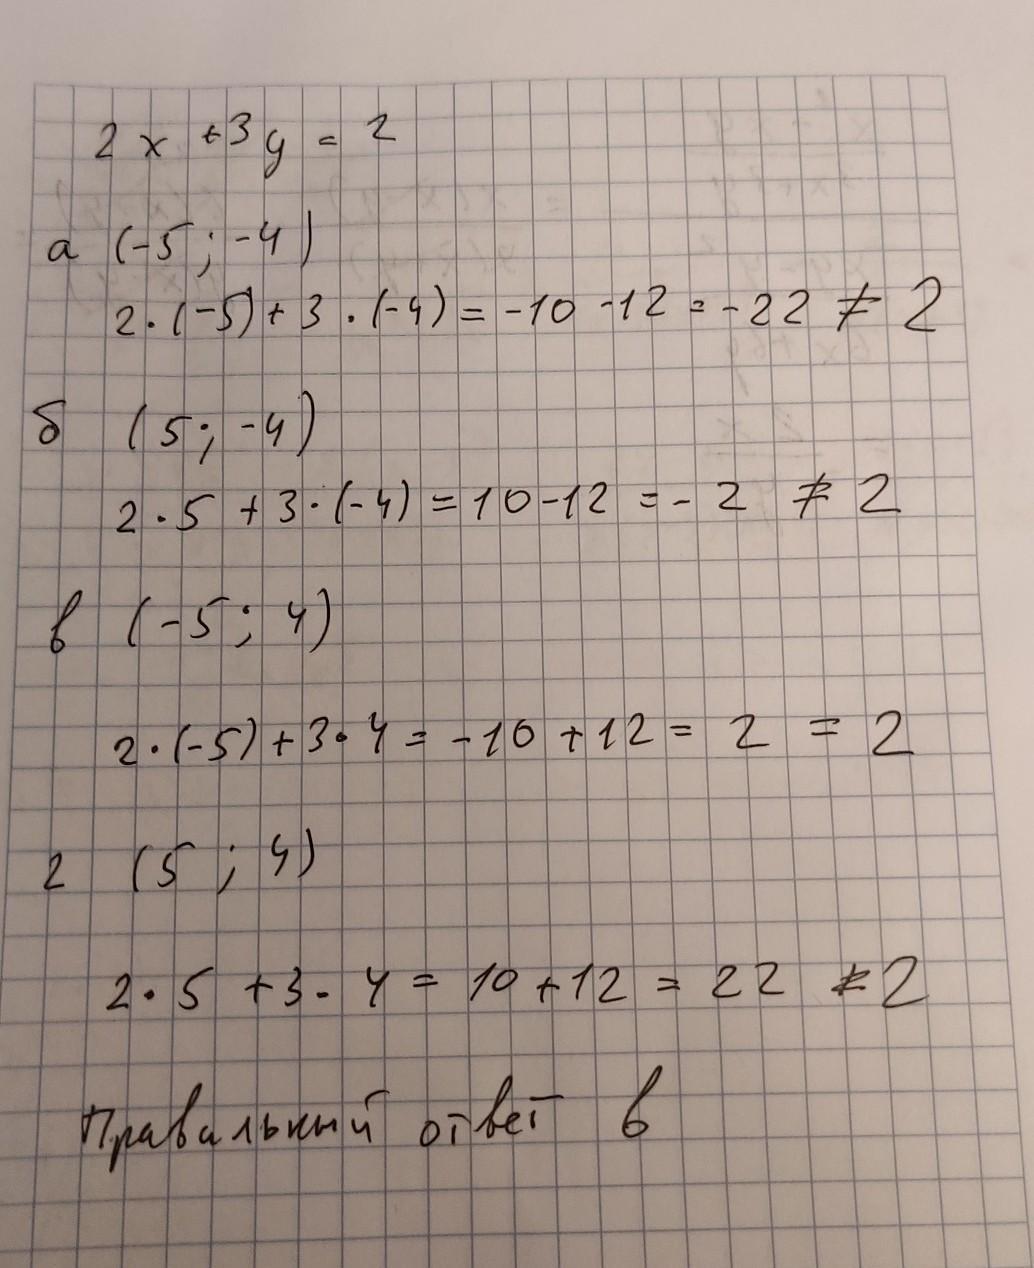 2x + 3y = 2
а (-5; -4)
2·(-5) + 3·(-4) = -10 -12 = -22 ≠ 2
б (5; -4)
2·5 + 3·(-4) = 10-12 = -2 ≠ 2
в (-5; 4)
2·(-5) + 3·4 = -10 + 12 = 2 = 2
г (5; 4)
2·5 + 3·4 = 10 + 12 = 22 ≠ 2
Правильный ответ в